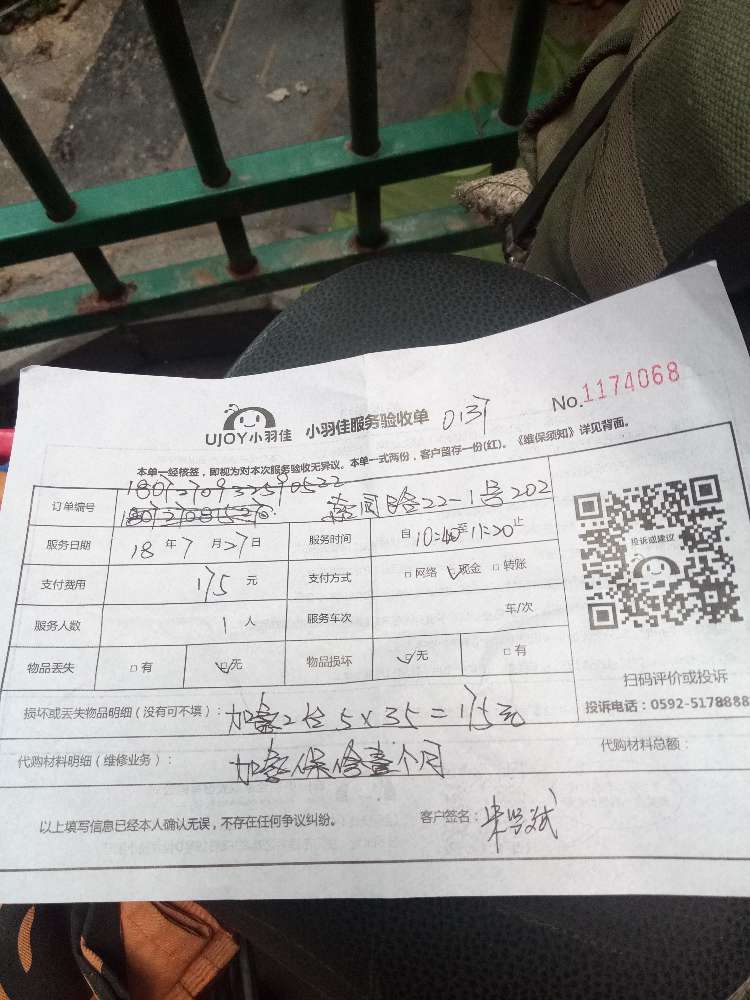 UJOY小羽佳 小羽佳服务验收单 No.1174068
本单一经核签，即视为对本次服务验收无异议。本单一式两份，客户留存一份(红)。《维保须知》详见背面。
订单编号 22-1号202
服务日期 18年7月27日 服务时间 自10:40至11:20止
支付费用 175元 支付方式 □网络 □现金 □转账
服务人数 1人 服务车次 车/次
物品丢失 □有 □无 物品损坏 □无 □有
投诉或建议
扫码评价或投诉
投诉电话：0592-5178888
损坏或丢失物品明细（没有可不填）： 2台 5×35=175元
代购材料明细（维修业务）： 个月
代购材料总额：
以上填写信息已经本人确认无误，不存在任何争议纠纷。 客户签名：